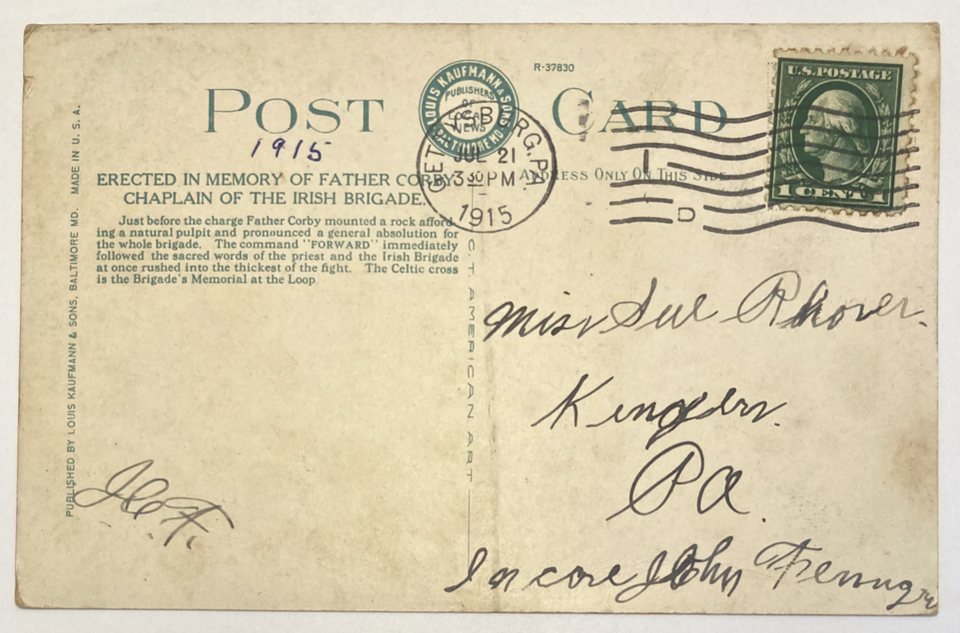 R-37830
POST CARD
LOUIS KAUFMANN & SONS
BALTIMORE MD.
PUBLISHERS
OF
LOCAL
NEWS
U.S. POSTAGE
1 CENT 1
GETTYSBURG, PA.
JUL 21
3 30 PM
1915
1915
ERECTED IN MEMORY OF FATHER CORBY
CHAPLAIN OF THE IRISH BRIGADE.
ADDRESS ONLY ON THIS SIDE
Just before the charge Father Corby mounted a rock afford-
ing a natural pulpit and pronounced a general absolution for
the whole brigade. The command "FORWARD" immediately
followed the sacred words of the priest and the Irish Brigade
at once rushed into the thickest of the fight. The Celtic cross
is the Brigade's Memorial at the Loop
PUBLISHED BY LOUIS KAUFMANN & SONS, BALTIMORE MD. MADE IN U. S. A.
C.T. AMERICAN ART
Miss Sue
Pa.
In care John
J.C.F.